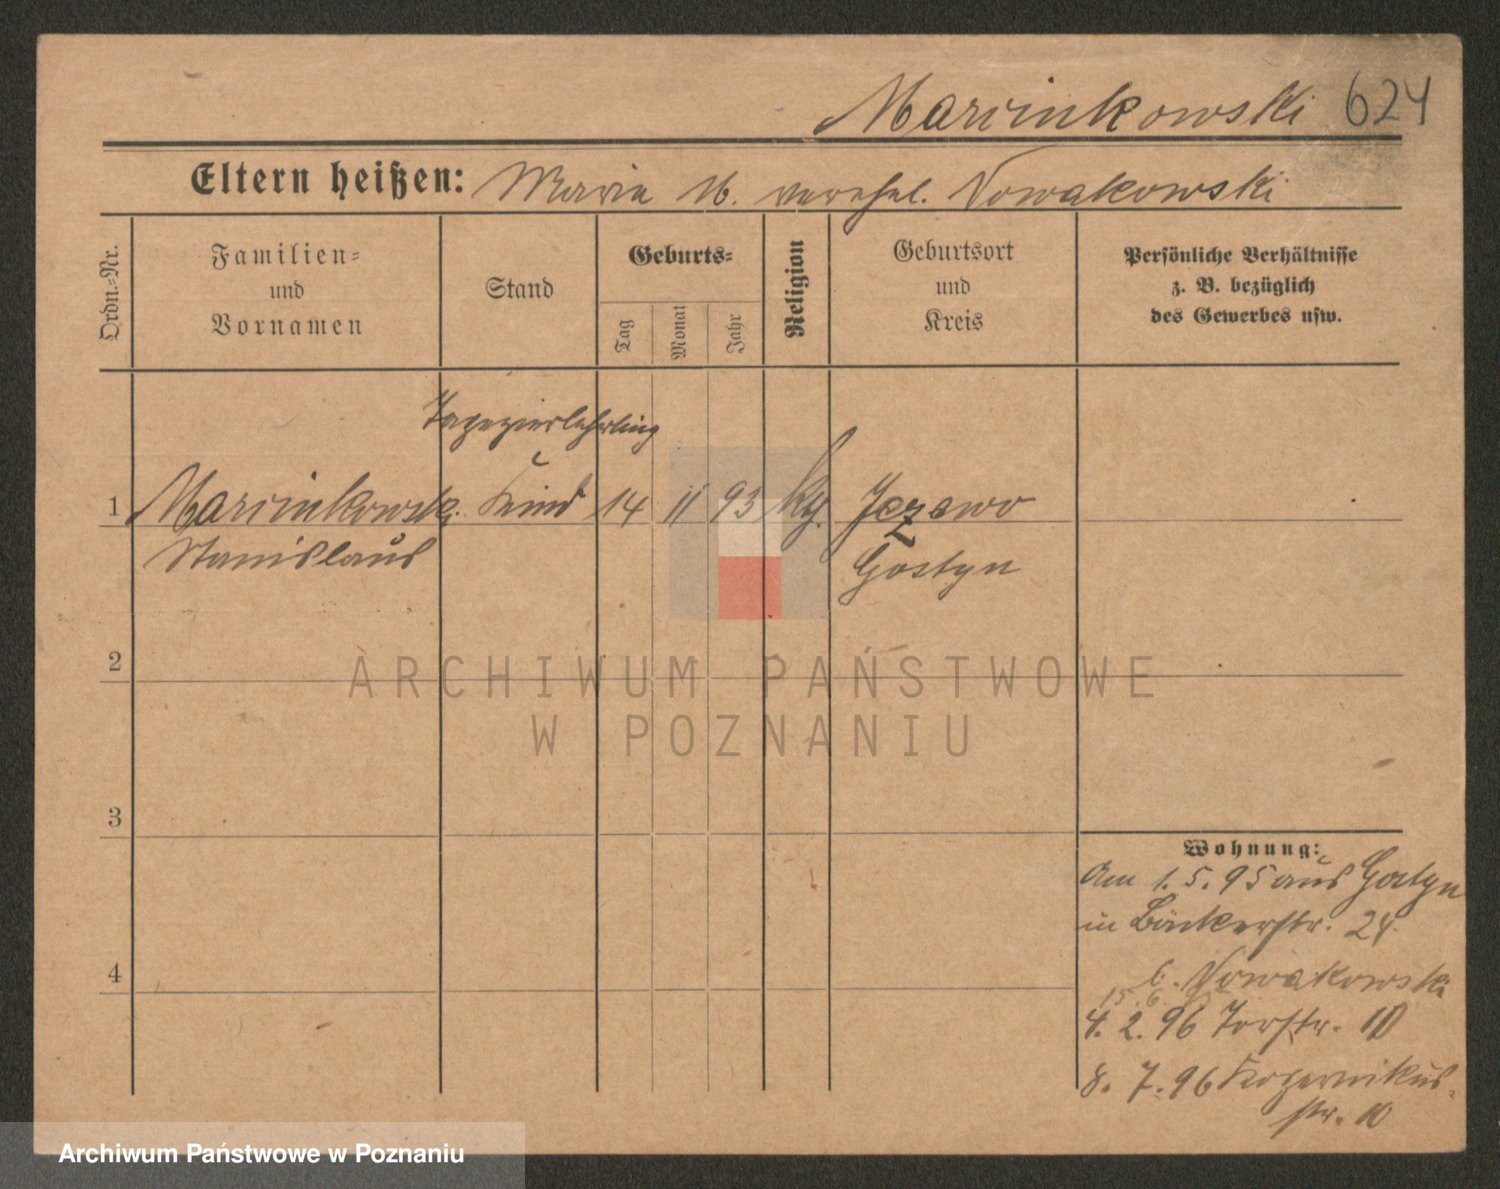 Marcinkowski 624
Eltern heißen: Maria M. verehel. Nowakowski
Ordn.-Nr.
Familien-
und
Vornamen
Stand
Geburts-
Tag
Monat
Jahr
Religion
Geburtsort
und
Kreis
Persönliche Verhältnisse
z. B. bezüglich
des Gewerbes usw.
Tapezierlehrling
1 Marcinkowski Kind 14 11 93 Jezewo
Stanislaus Gostyn
2
3
4
Wohnung:
Am 1. 5. 95 aus Gostyn
in Bäckerstr. 24.
b. Nowakowski
15. 6.
4. 2. 96 Torstr. 10
8. 7. 96 Kopernikus-
str. 10
ARCHIWUM PAŃSTWOWE
W POZNANIU
Archiwum Państwowe w Poznaniu